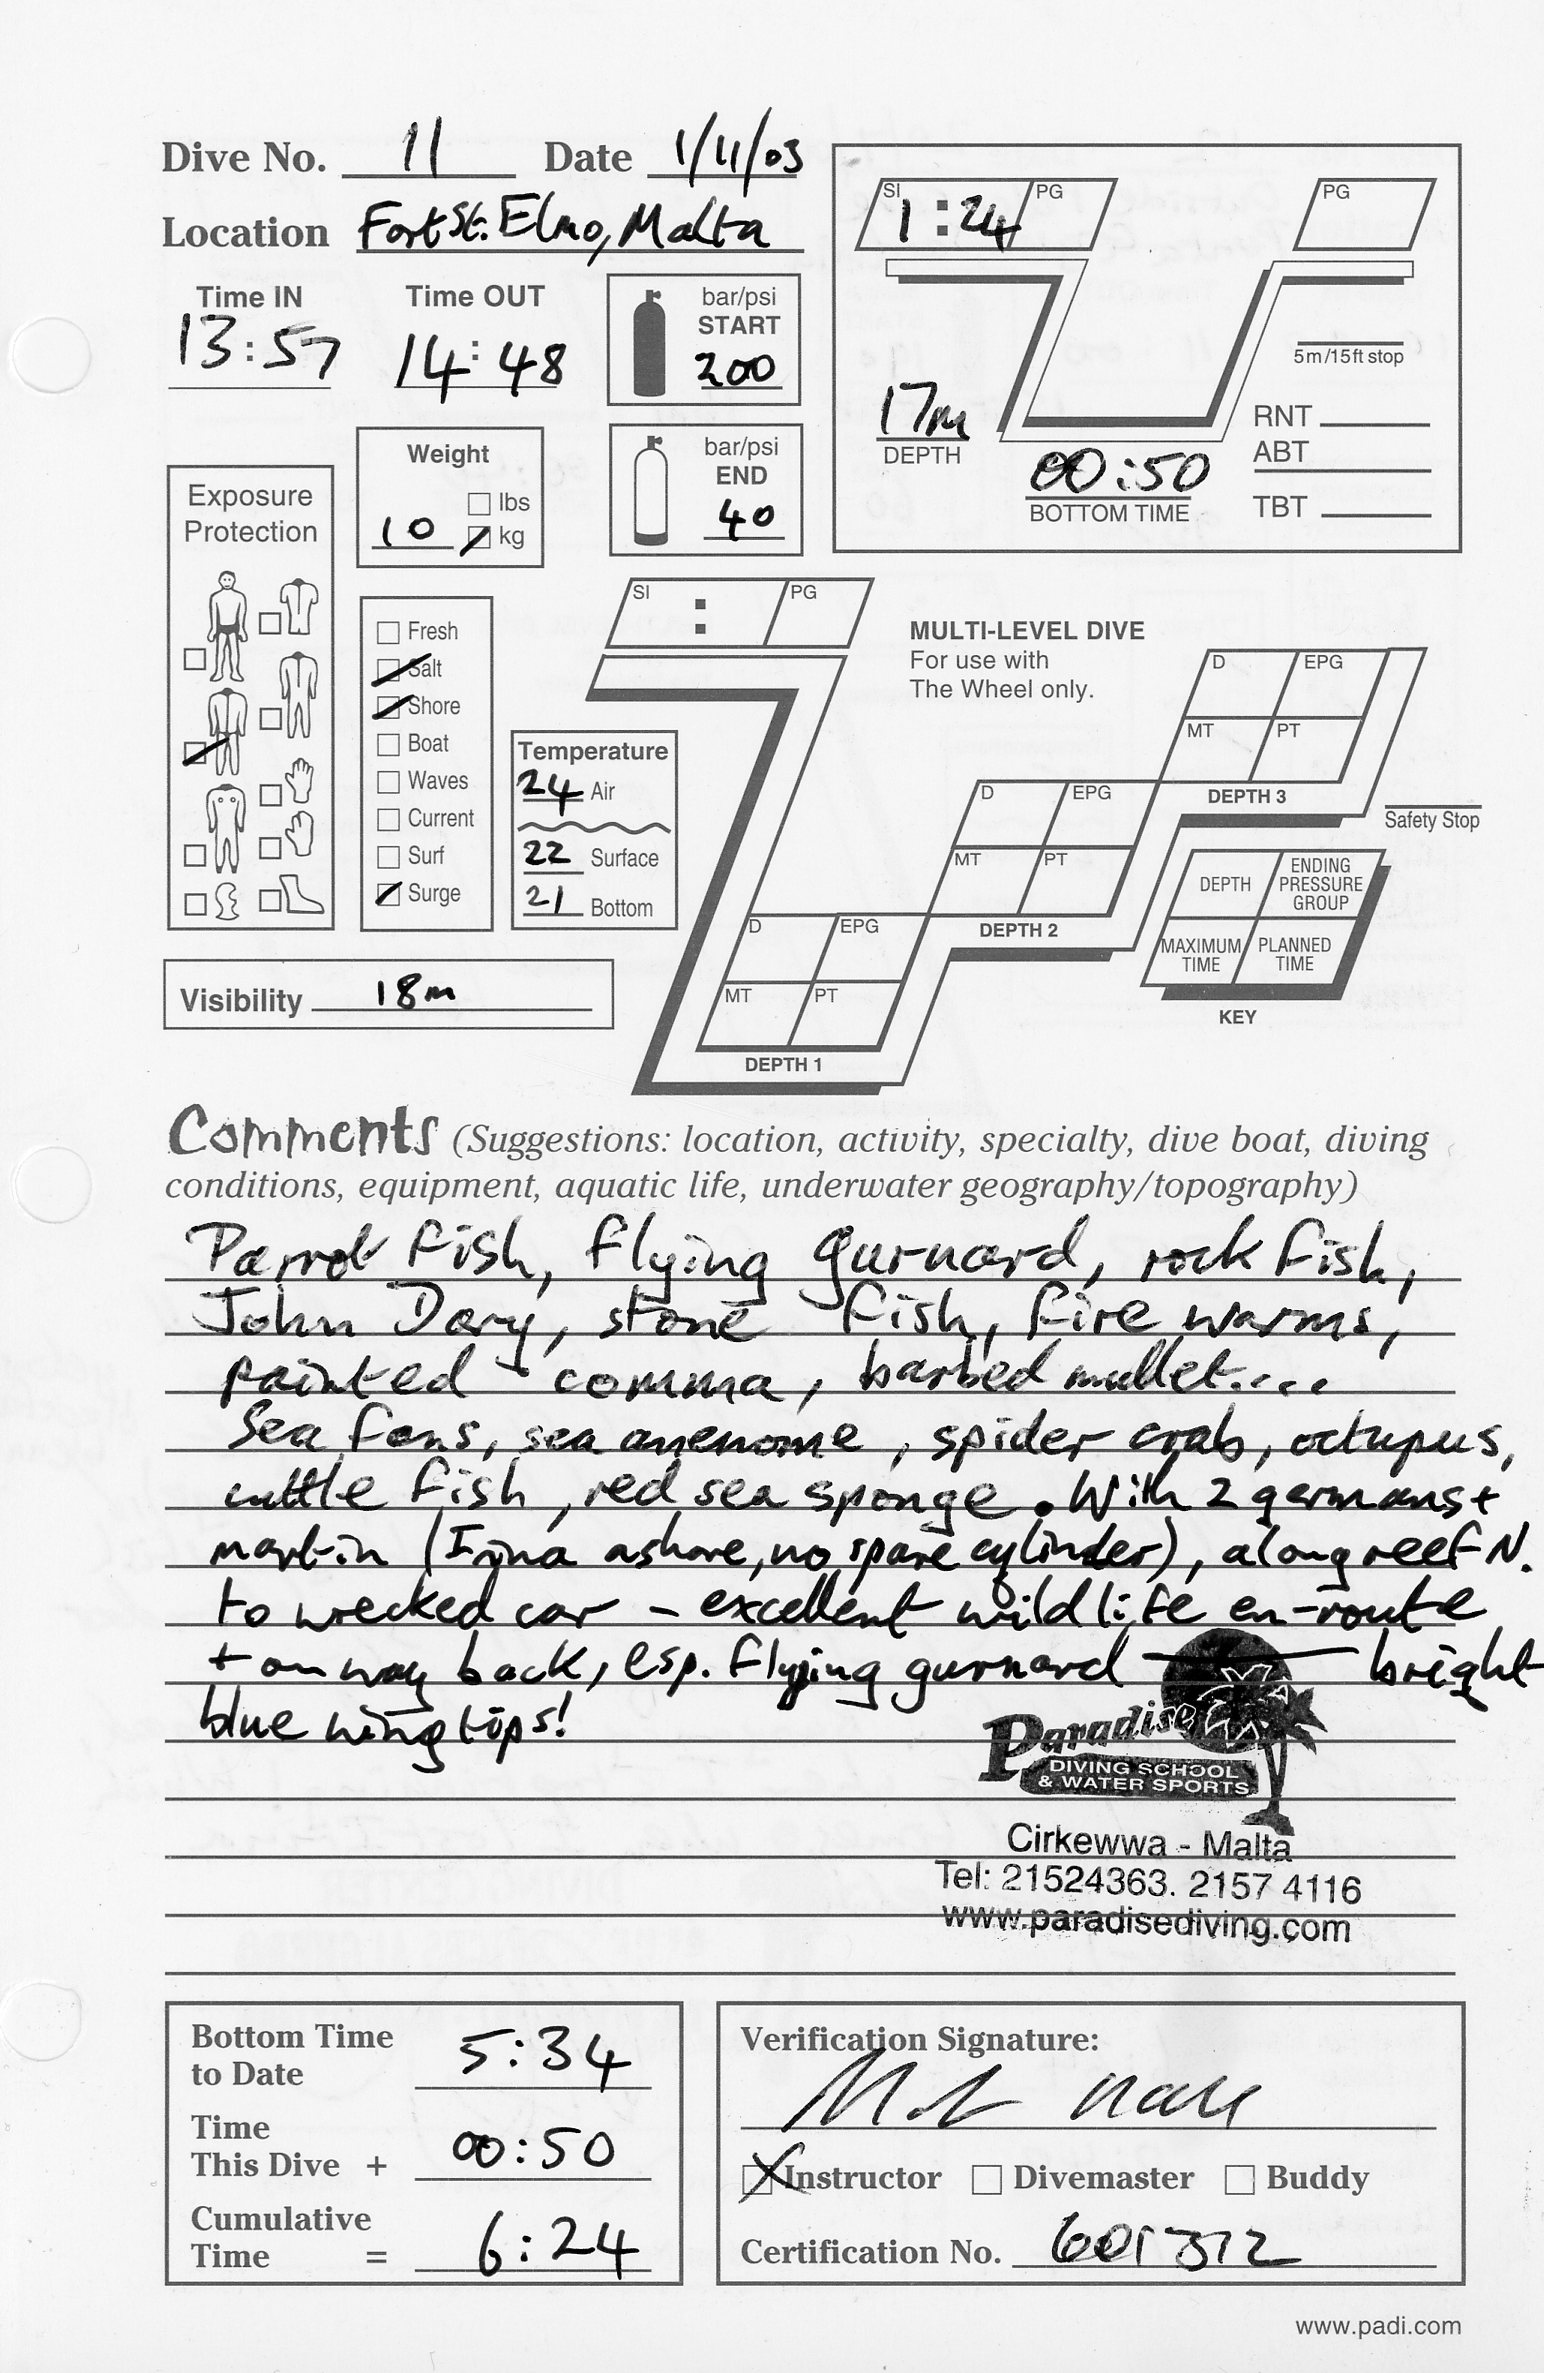 Dive No. 11 Date 1/11/03
Location Fort St. Elmo, Malta
Time IN Time OUT
13:57 14:48
bar/psi
START
200
SI 1:24 PG PG
5m/15ft stop
17m
DEPTH
00:50
BOTTOM TIME
RNT
ABT
TBT
Weight
lbs
10 kg
bar/psi
END
40
Exposure
Protection
Fresh
Salt
Shore
Boat
Waves
Current
Surf
Surge
Temperature
24 Air
22 Surface
21 Bottom
SI : PG
MULTI-LEVEL DIVE
For use with
The Wheel only.
D EPG
MT PT
DEPTH 3
Safety Stop
D EPG
MT PT
DEPTH 2
D EPG
MT PT
DEPTH 1
DEPTH
ENDING
PRESSURE
GROUP
MAXIMUM
TIME
PLANNED
TIME
KEY
Visibility 18m
Comments (Suggestions: location, activity, specialty, dive boat, diving
conditions, equipment, aquatic life, underwater geography/topography)
Parrot fish, flying gurnard, rock fish,
John Dory, stone fish, fire worms,
painted comma, barbed mullet....
Sea fans, sea anenome, spider crab, octupus,
cuttle fish, red sea sponge. With 2 germans +
martin (Irina ashore, no spare cylinder), along reef N.
to wrecked car - excellent wildlife en-route
+ on way back, esp. flying gurnard — bright
blue wingtips!
Paradise
DIVING SCHOOL
& WATER SPORTS
Cirkewwa - Malta
Tel: 21524363. 2157 4116
www.paradisediving.com
Bottom Time
to Date 5:34
Time
This Dive + 00:50
Cumulative
Time = 6:24
Verification Signature:
Instructor Divemaster Buddy
Certification No. 601312
www.padi.com